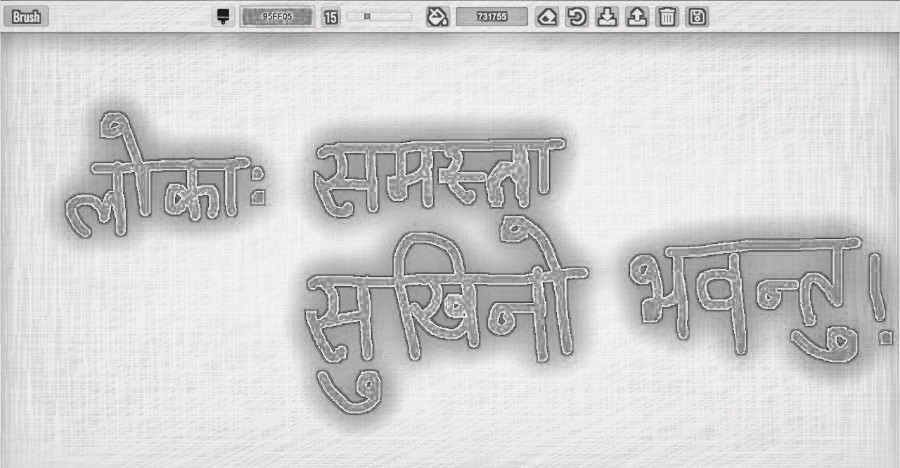 Brush 95FF05 15 731765
लोकाः समस्ता
सुखिनो भवन्तु!